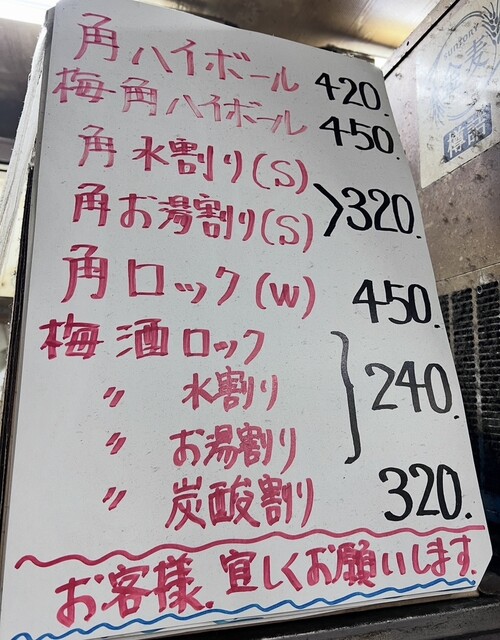 角ハイボール 420.
梅角ハイボール 450.
角水割り(S)
角お湯割り(S) 320.
角ロック(W) 450.
梅酒ロック
〃 水割り 240.
〃 お湯割り
〃 炭酸割り 320.
お客様.宜しくお願いします.
SUNTORY
樽詰